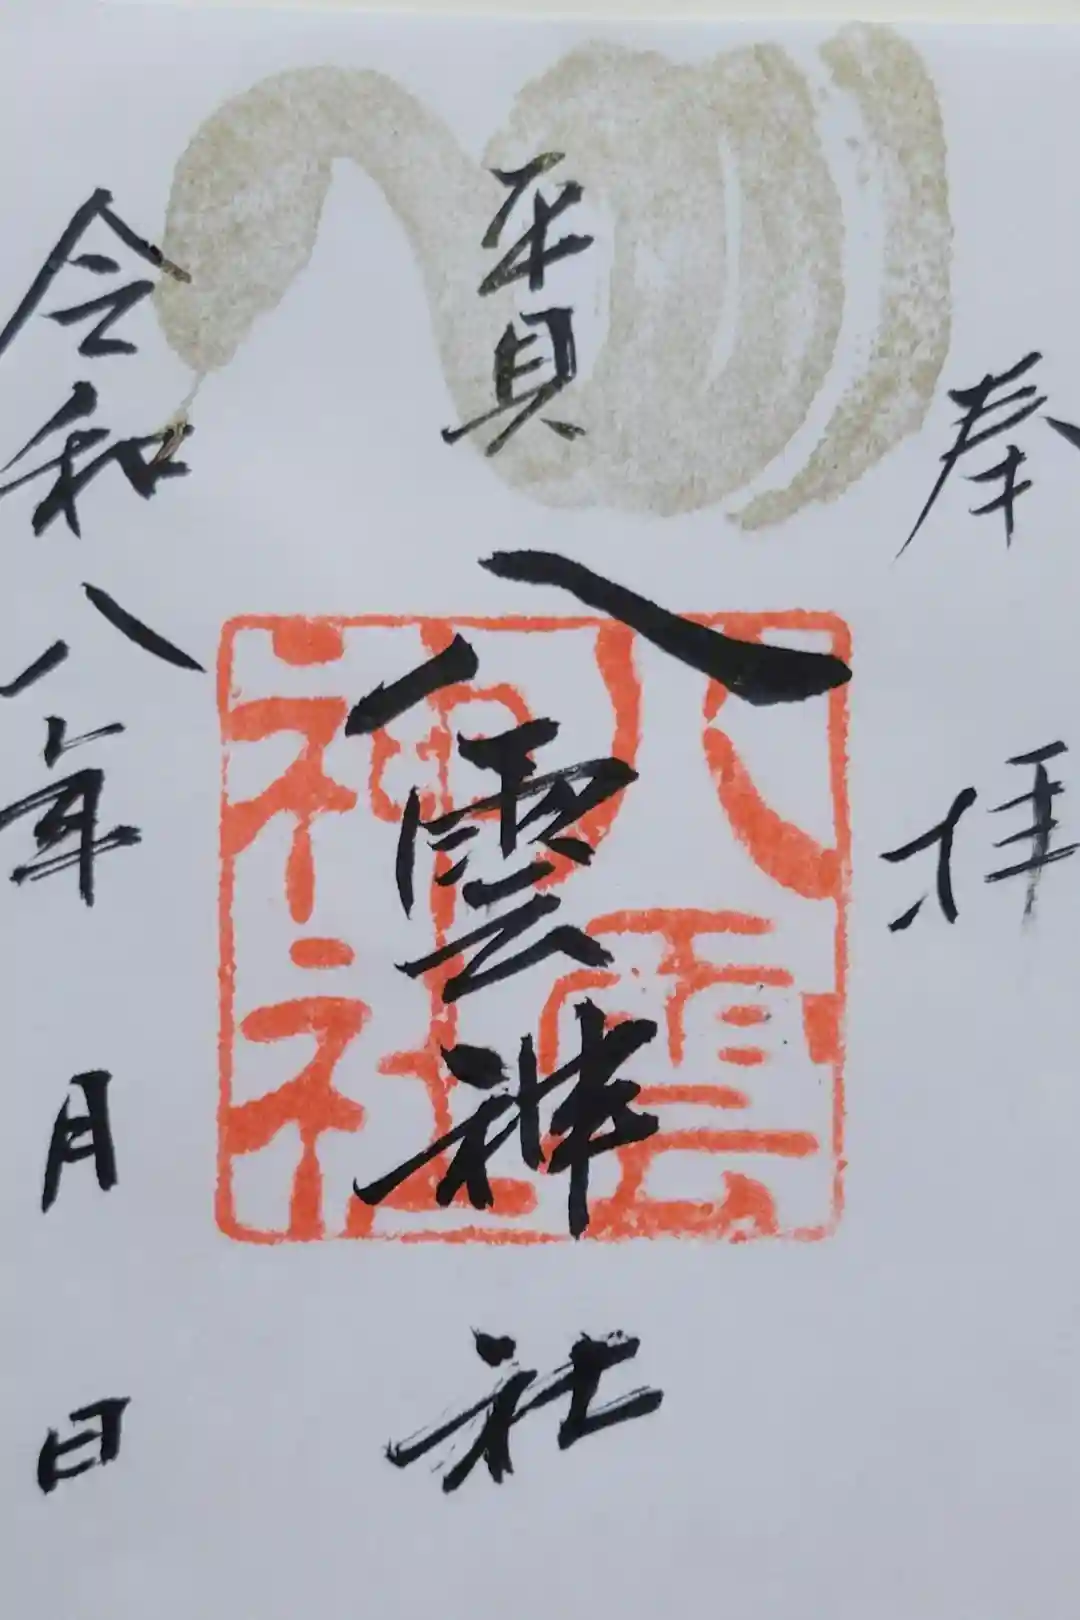 奉拝
平貝
八雲神社
八雲
神社
令和八年 月 日